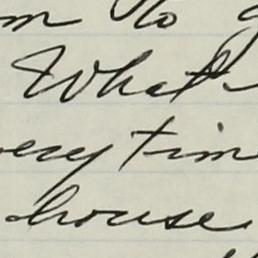 m to g
What
very tim
house